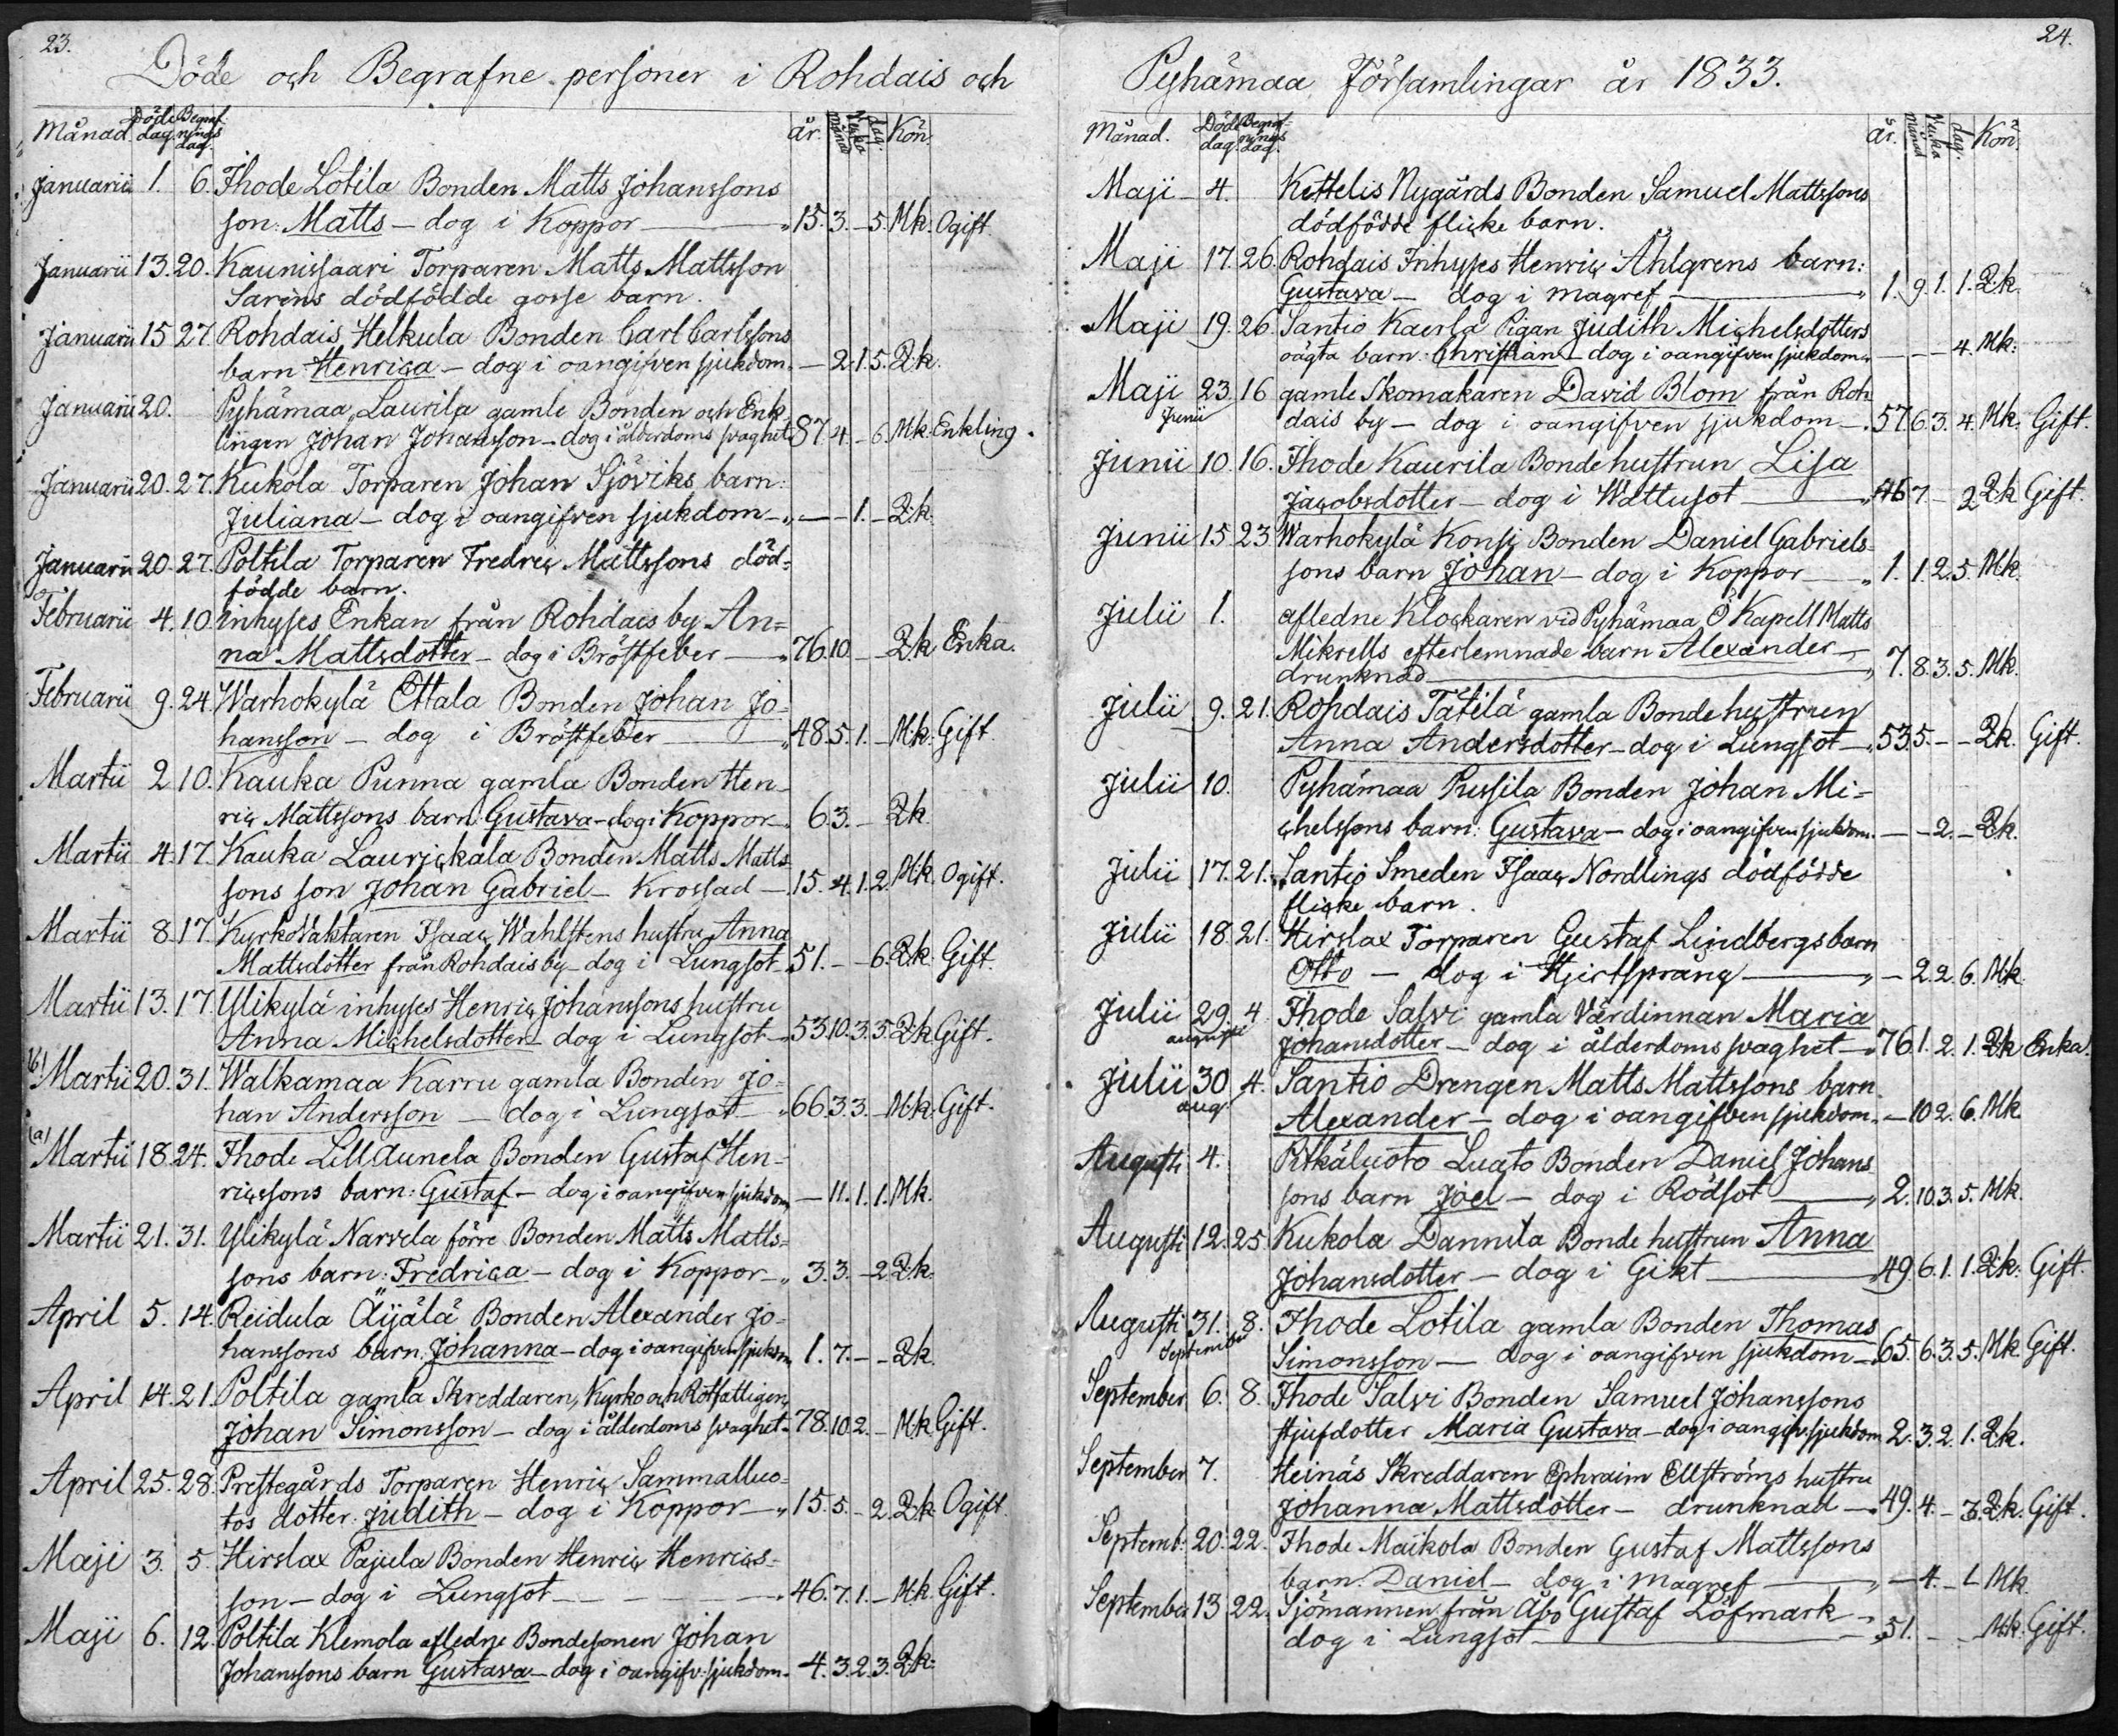 23.
Döde och Begrafne personer i Rohdais och
Månad. Döde dag. Begrafnings dag. år. Månad Veika dag. Kön.
Januarii 1. 6. Ihode Lotila Bonden Matts Johanssons
son: Matts — dog i Koppor — 15. 3. — 5. Mk. Ogift
Januarii 13. 20. Kaunissaari Torparen Matts Mattsson
Sarens dödfödde gosse barn.
Januarii 15 27 Rohdais Helkula Bonden Carl Carlssons
barn Henrica — dog i oangifven sjukdom. — 2. 1. 5. Qk.
Januarii 20. Pyhämaa Laurila gamle Bonden och Enk
lingen Johan Johansson — dog i ålderdoms svaghet 87. 4. — 6. Mk. Enkling.
Januarii 20. 27. Kukola Torparen Johan Sjöviks barn:
Juliana — dog i oangifven sjukdom — „ — — 1. — Qk.
Januarii 20. 27. Poltila Torparen Fredric Mattssons död=
födde barn.
Februarii 4. 10. Inhyses Enkan från Rohdais by An=
na Mattsdotter — dog i Bröstfeber — „ 76. 10. — — Qk Enka.
Februarii 9. 24. Warhokylä Ettala Bonden Johan Jo=
hansson — dog i Bröstfeber — „ 48. 5. 1. — Mk. Gift
Martii 2 10. Kauka Punna gamla Bonden Hen-
ric Mattssons barn Gustava — dog i Koppor — „ 6. 3. — Qk.
Martii 4. 17. Kauka Laurickala Bonden Matts Matts
sons son Johan Gabriel — Krossad — 15. 4. 1. 2. Mk. Ogift.
Martii 8. 17. Kyrkovaktaren Isaac Wahlstens hustru Anna
Mattsdotter från Rohdais by — dog i Lungsot — 51. — — 6. Qk. Gift.
Martii 13. 17. Ylikylä inhyses Henric Johanssons hustru
Anna Michelsdotter — dog i Lungsot — 53. 10. 3. 5. Qk Gift.
(b) Martii 20. 31. Walkamaa Karru gamla Bonden Jo=
han Andersson — dog i Lungsot — „ 66. 3. 3. — Mk. Gift.
(a) Martii 18. 24. Ihode Lilldunela Bonden Gustaf Hen-
ricssons barn: Gustaf — dog i oangifven sjukdom, — 11. 1. 1. Mk.
Martii 21. 31. Ylikylä Narvila förre Bonden Matts Matts=
sons barn: Fredrica — dog i Koppor — „ 3. 3. — 2 Qk.
April 5. 14. Reidula Äijälä Bonden Alexander Jo-
hanssons barn: Johanna — dog i oangifven sjukdm, 1. 7. — — Qk.
April 14. 21. Poltila gamla Skreddaren, Kyrko och Rotfattigen,
Johan Simonsson — dog i ålderdoms svaghet — 78. 10. 2. — Mk. Gift.
April 25. 28. Prestegårds Torparen Henric Sammalluo=
tos dotter: Judith — dog i Koppor — „ 15. 5. — 2. Qk Ogift
Maji 3. 5. Hirslax Pajula Bonden Henric Henrics-
son — dog i Lungsot — — — — — 46. 7. 1. — Mk. Gift.
Maji 6. 12. Poltila Klemola afledne Bondesonen Johan
Johanssons barn Gustava — dog i oangifv: sjukdom. 4. 3. 2. 3. Qk.
24.
Pyhämaa Församlingar år 1833.
Månad. Döde dag. Begrafnings dag. år. Månad Veika dag. Kön.
Maji — 4. Kettelis Nygårds Bonden Samuel Mattssons
dödfödde flicke barn.
Maji 17. 26. Rohdais Inhyses Henric Åhlgrens barn:
Gustava — dog i magref — „ 1. 9. 1. 1. Qk.
Maji 19. 26. Santio Kaerla Pigan Judith Michelsdotters
oägta barn: Christian — dog i oangifven sjukdom „ — — — 4. Mk:
Maji 23. 16 gamle Skomakaren David Blom från Roh
Junii dais by — dog i oangifven sjukdom — 57 6. 3. 4. Mk. Gift.
Junii 10. 16. Ihode Kaurila Bonde hustrun Lisa
Jacobsdotter — dog i Wattusot — 46 7 — 2 Qk Gift.
Junii 15 23 Warhokylä Konsi Bonden Daniel Gabriels=
sons barn Johan — dog i Koppor — „ 1. 1 2. 5. Mk.
Julii 1. afledne Klockaren vid Pyhämaa Ö Kapell Matts
Mikrells efterlemnade barn Alexander —
drunknad — „ 7. 8. 3. 5. Mk.
Julii 9. 21. Rohdais Tätilä gamla Bonde hustrun
Anna Andersdotter — dog i Lungsot — „ 53 5. — — Qk. Gift.
Julii 10. Pyhämaa Pussila Bonden Johan Mi=
chelssons barn: Gustava — dog i oangifven sjukdom. — — 2. — Qk.
Julii 17. 21. Santio Smeden Isaac Nordlings dödfödde
flicke barn.
Julii 18. 21. Hirslax Torparen Gustaf Lindbergs barn
Otto — dog i Hjertsprång — „ — 2. 2. 6. Mk.
Julii 29. 4. Ihode Salvi gamla Värdinnan Maria
augusti Johansdotter — dog i ålderdoms svaghet — „ 76 1. 2. 1. Qk Enka.
Julii 30 4. Santio Drengen Matts Mattssons barn
aug. Alexander — dog i oangifven sjukdom „ — 10 2. 6. Mk
Augusti 4. Pitkäluoto Luoto Bonden Daniel Johans
sons barn Joel — dog i Rödsot — „ 2. 10. 3. 5. Mk.
Augusti 12. 25 Kukola Dannila Bonde hustrun Anna
Johansdotter — dog i Gikt — 49. 6. 1. 1. Qk. Gift.
Augusti 31. 8. Ihode Lotila gamla Bonden Thomas
September Simonsson — dog i oangifven sjukdom — 65. 6. 3. 5. Mk Gift.
September 6. 8. Ihode Salvi Bonden Samuel Johanssons
stjufdotter Maria Gustava — dog i oangifv: sjukdom 2. 3. 2. 1. Qk.
September 7. Heinäs Skreddaren Ephraim Ellströms hustru
Johanna Mattsdotter — drunknad — „ 49. 4. — 3. Qk. Gift.
Septemb: 20. 22. Ihode Maikola Bonden Gustaf Mattssons
barn. Daniel — dog i magref — „ — 4. — 1. Mk.
September 13 22. Sjömannen från Åbo Gustaf Löfmark —
dog i Lungsot — „ 51. — — Mk. Gift.